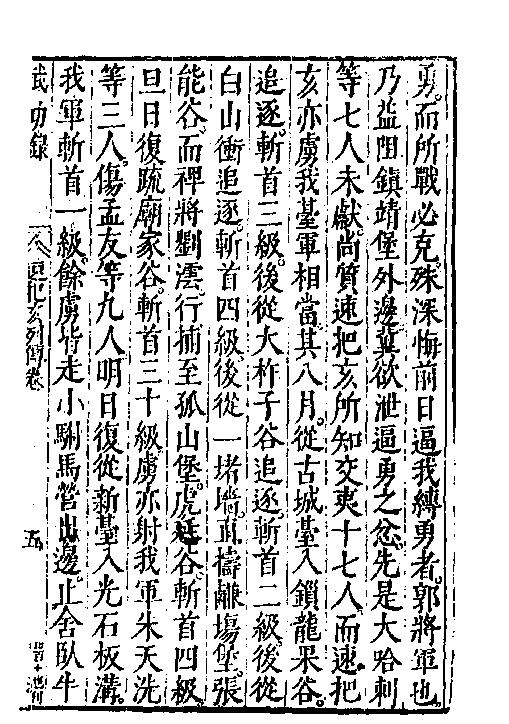 勇而所戰必克殊深悔前日逼我縛勇者郭將軍也
乃益阻鎮靖堡外邊冀欲泄逼勇之忿先是大哈剌
等七人未獻尚質速把亥所知交夷十七人而速把
亥亦虜我臺軍相當其八月從古城臺入鎖龍果谷
追逐斬首三級後從大柞子谷追逐斬首二級後從
白山衝追逐斬首四級後從一堵墻直擣離塲堡張
能谷而裨將劉澐行捕至孤山堡虎延谷斬首四級
旦日復疏廟家谷斬首三十級虜亦射我軍朱天洗
等三人傷孟友等九人明日復從新臺入光石板溝
我軍斬首一級餘虜皆走小駙馬營出邊止舍臥牛
武功錄 速把亥列傳卷 五